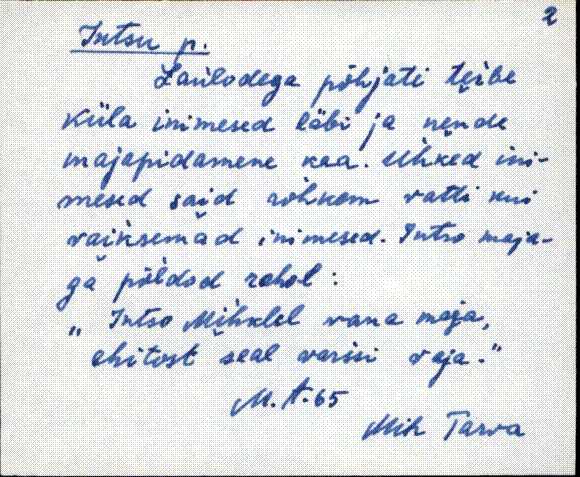 2
Intsu p.
Laulodega põhjati teise
küla inimesed läbi ja nende
majapidamene kaa. Uhked ini-
mesed said rohkem vatti kui
vaiksemad inimesed. Intso maja-
ga põldod rahol:
„Intso Mihklel vana maja,
ehitost seal varssi vaja."
M. A. 65
Mih Tarva